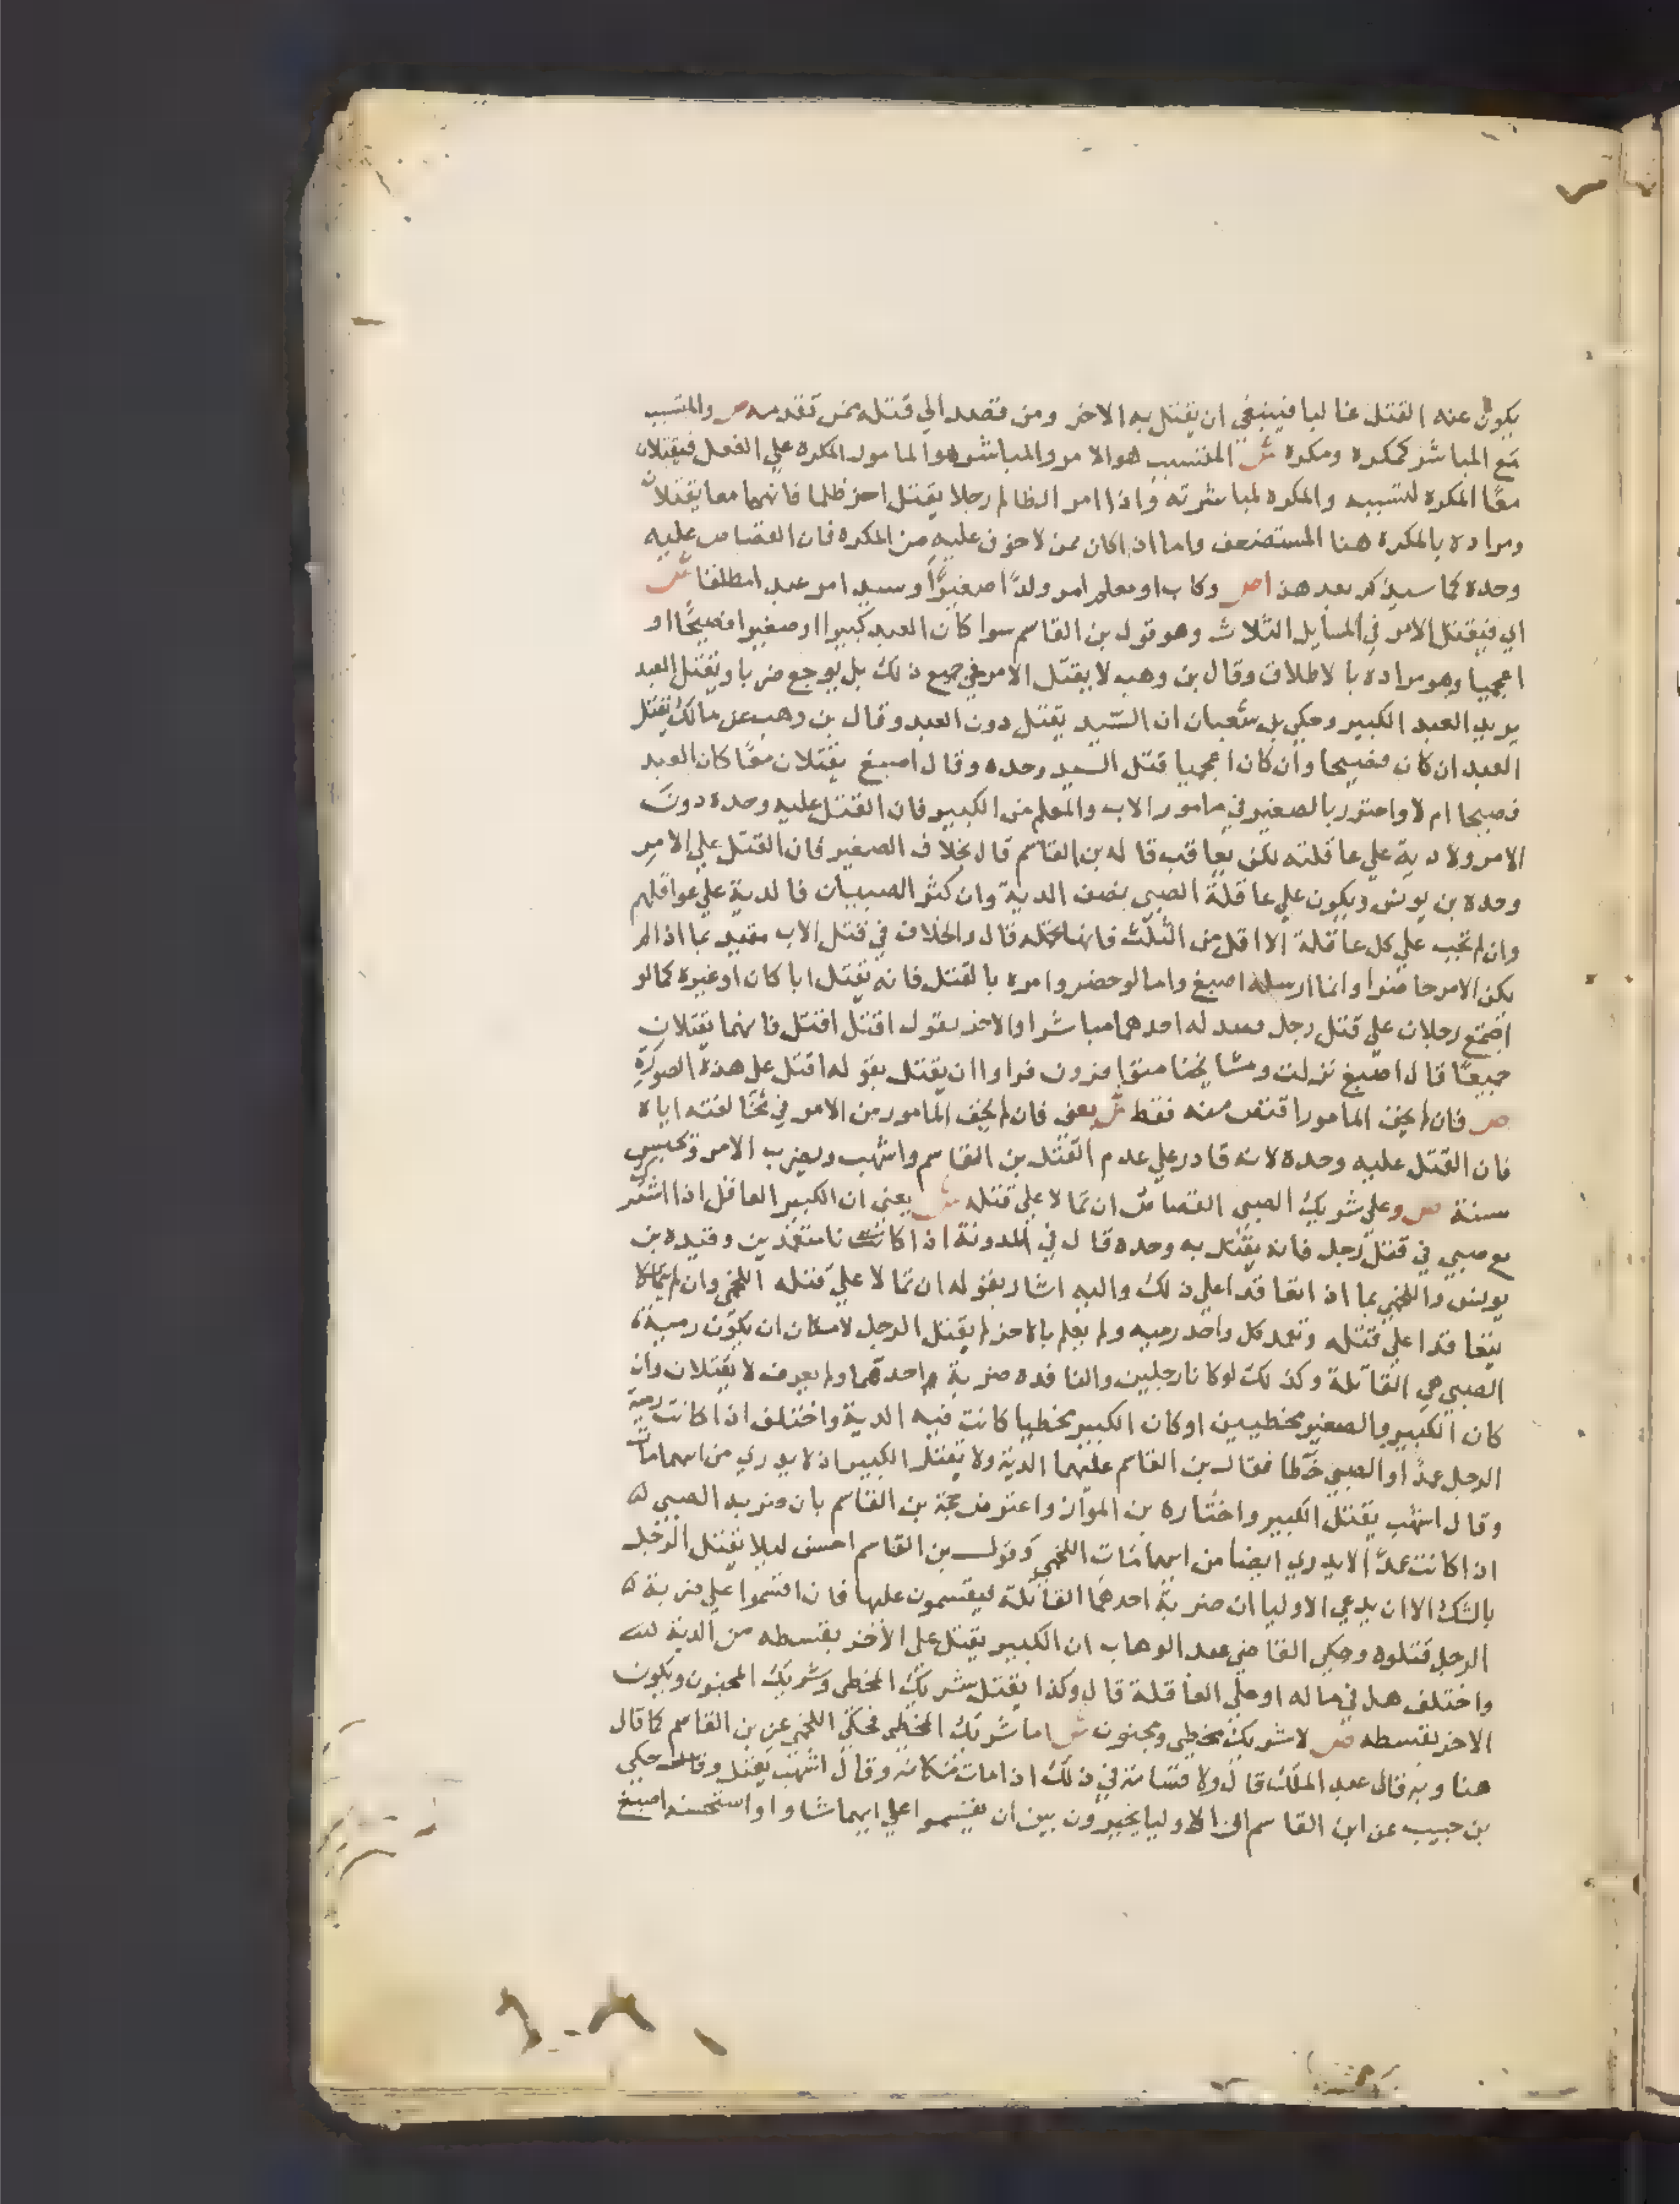 يكون عنه القتل غالبا فينبغي ان يقتل به الاخر ومن قصد الي قتله ممن تقدم منه ص والمتسبب
مع المباشر كمكره ومكره ش المتسبب هو الامر والمباشر هو المامور المكره علي الفعل فيقتلان
معًا المكره لتسببه والمكره لمباشرته واذا امر الظالم رجلا يقتل اخر ظلما فانهما معا يقتلان
ومراده بالمكره هنا المستضعف واما اذا كان ممن لا خوف عليه من المكره فان القصاص عليه
وحده كما سيذكر بعد هذا ص وكاب او معلم امر ولدًا صغيرًا وسيد امر عبدا مطلقا ش
اي فيقتل الامر في المسايل الثلاث وهو قول بن القاسم سوا كان العبد كبيرا او صغيرا فصيحًا او
اعجميا وهو مراده بالاطلاق وقال بن وهب لا يقتل الامر في جميع ذلك بل يوجع ضربا ويقتل العبد
يريد العبد الكبير وحكي بن شعبان ان السيد يقتل دون العبد وقال بن وهب عن مالك يقتل
العبد ان كان فصيحا وان كان اعجميا قتل السيد وحده وقال اصبغ يقتلان معًا كان العبد
فصيحا ام لا واحترز بالصغير في مامور الاب والمعلم من الكبير فان القتل عليه وحده دون
الامر ولا دية علي عاقلته لكن يعاقب قاله بن القاسم قال بخلاف الصغير فان القتل علي الامر
وحده بن يونس ويكون علي عاقلة الصبي نصف الدية وان كثر الصبيان فالدية علي عواقلهم
وان لم تجب علي كل عاقلة الا اقل من الثلث فانها تحمله قال والخلاف في قتل الاب مقيد بما اذا لم
يكن الامر حاضرا وانما ارسله اصبغ واما لو حضر وامره بالقتل فانه يقتل ابا كان او غيره كما لو
اجتمع رجلان علي قتل رجل فعمد له احدهما مباشرا والاخر يقول اقتل اقتل فانهما يقتلان
جميعًا قال اصبغ نزلت ومشايخنا متوافرون فراوا ان يقتل بقوله اقتل علي هذه الصورة
ص فان لم يخف المامور اقتص منه فقط ش يعني فان لم يخف المامور من الامر في مخالفته اياه
فان القتل عليه وحده لانه قادر علي عدم القتل بن القاسم واشهب ويضرب الامر ويحبس
سنة ص وعلي شريك الصبي القصاص ان تمالا علي قتله ش يعني ان الكبير العاقل اذا اشترك
مع صبي في قتل رجل فانه يقتل به وحده قال في المدونة اذا كانا متعمدين وقيده بن
يونس واللخمي بما اذا تعاقدا علي ذلك واليه اشار بقوله ان تمالا علي قتله اللخمي وان لم يتمالا
يتعاقدا علي قتله وتعمد كل واحد رميه ولم يعلم بالاخر لم يقتل الرجل لامكان ان يكون رمية
الصبي هي القاتلة وكذلك لو كانا رجلين والنافذه ضربة احدهما ولم يعرف لا يقتلان وان
كان الكبير والصغير مخطيين او كان الكبير مخطيا كانت فيه الدية واختلف اذا كانت رمية
الرجل عمدًا والصبي خطا فقال بن القاسم عليهما الدية ولا يقتل الكبير اذ لا يدري من ايهما مات
وقال اشهب يقتل الكبير واختاره بن المواز واعترض حجة بن القاسم بان ضربه الصبي
اذا كانت عمدًا لا يدري ايضا من ايهما مات اللخمي وقول بن القاسم احسن ليلا يقتل الرجل
بالشك الا ان يدعي الاوليا ان ضربة احدهما القاتلة ليقسمون عليها فان اقسموا علي ضربة
الرجل قتلوه وحكي القاضي عبد الوهاب ان الكبير يقتل علي الاخر بقسطه من الدية
واختلف هل في ماله او علي العاقلة قال وكذا يقتل شريك المخطي وشريك المجنون ويكون
الاخر بقسطه ص لا شريك مخطي ومجنون ش اما شريك المخطي فحكي اللخمي عن بن القاسم كما قال
هنا وبه قال عبد الملك قال ولا قسامة في ذلك اذا مات مكانه وقال اشهب يقتل وقال حكي
بن حبيب عن ابن القاسم ان الاوليا يخيرون بين ان يقسموا علي ايهما شاوا واستحسنه اصبغ